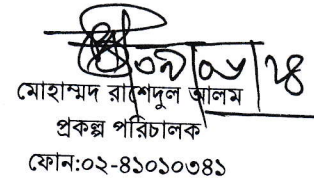 মোহাম্মদ রাশেদুল আলম
প্রকল্প পরিচালক
ফোন:০২-৪১০১০৩৪১